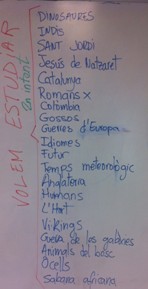 VOLEM ESTUDIAR
DINOSAURES
INDIS
SANT JORDI
Jesús de Natzaret
Catalunya
Romans x
Colòmbia
Gossos
Guerres d'Europa
Idiomes
Futur
Temps meteorològic
Anglaterra
Humans
L'Hort
Vikings
Cueva de les
Animals del bosc
Ocells
Sabana africana